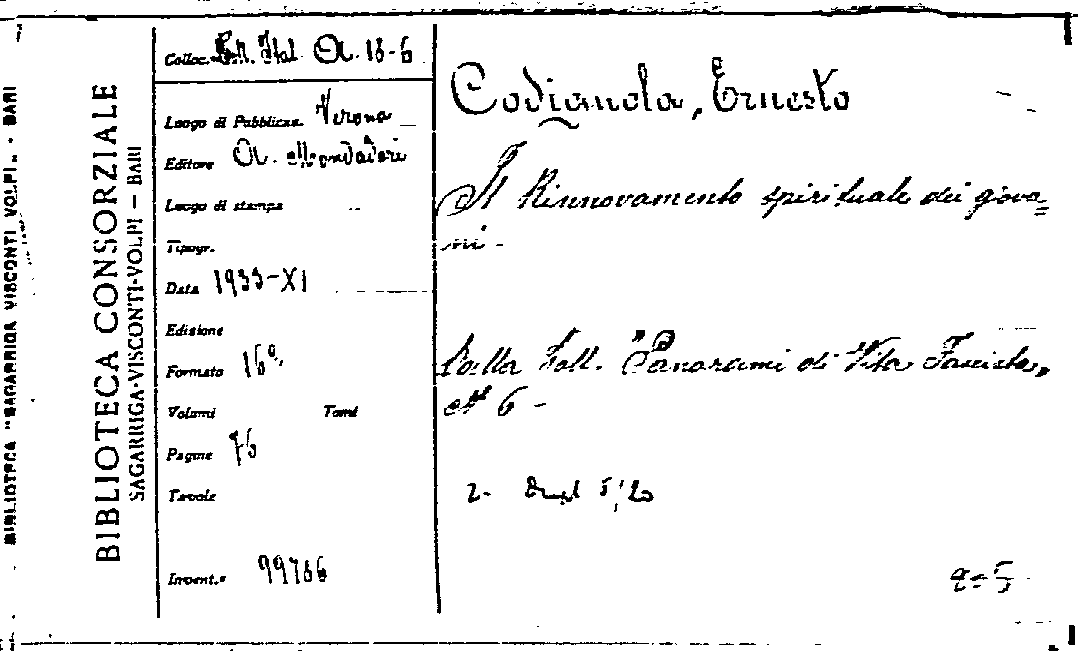 BIBLIOTECA "SAGARRIGA VISCONTI VOLPI" - BARI
BIBLIOTECA CONSORZIALE
SAGARRIGA-VISCONTI-VOLPI — BARI
Colloc. Ital. A. 18-6
Luogo di Pubblicaz. Verona
Editore A. Mondadori
Luogo di stampa
Tipogr.
Data 1933-XI
Edizione
Formato 16°
Volumi Tomi
Pagine 76
Tavole
Invent.° 99766
Codignola, Ernesto
Il Rinnovamento spirituale dei giova=
ni -
Dalla Coll. "Panorami di Vita Fascista"
N° 6 -
2-